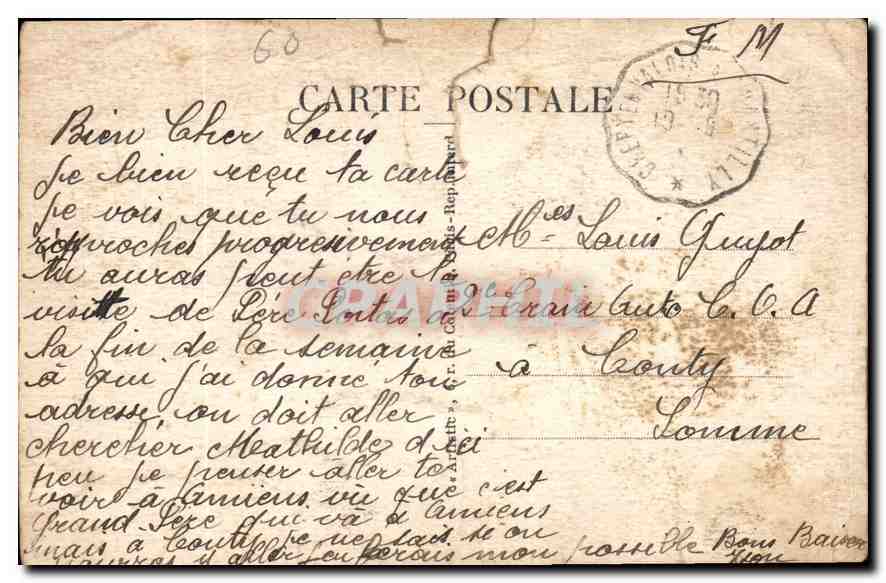 60
F M
CARTE POSTALE
CREPY EN VALOIS
CHANTILLY
Bien Cher Louis
Je bien reçu ta carte
Je vois que tu nous
rapproches progressivement
tu auras peut être la
visite de Père
la fin de la semaine
à qui j'ai donné ton
adresse on doit aller
chercher Mathilde d'ici
peu je penser aller te
voir à Amiens vu que c'est
Grand-Père qui va à Amiens
mais à Conty je ne sais si on
aller mon possible Bons Baiser
Louis Guyot
2e Train Auto C. O. A
à Conty
Somme
« Artistic »
CRAPOUIL